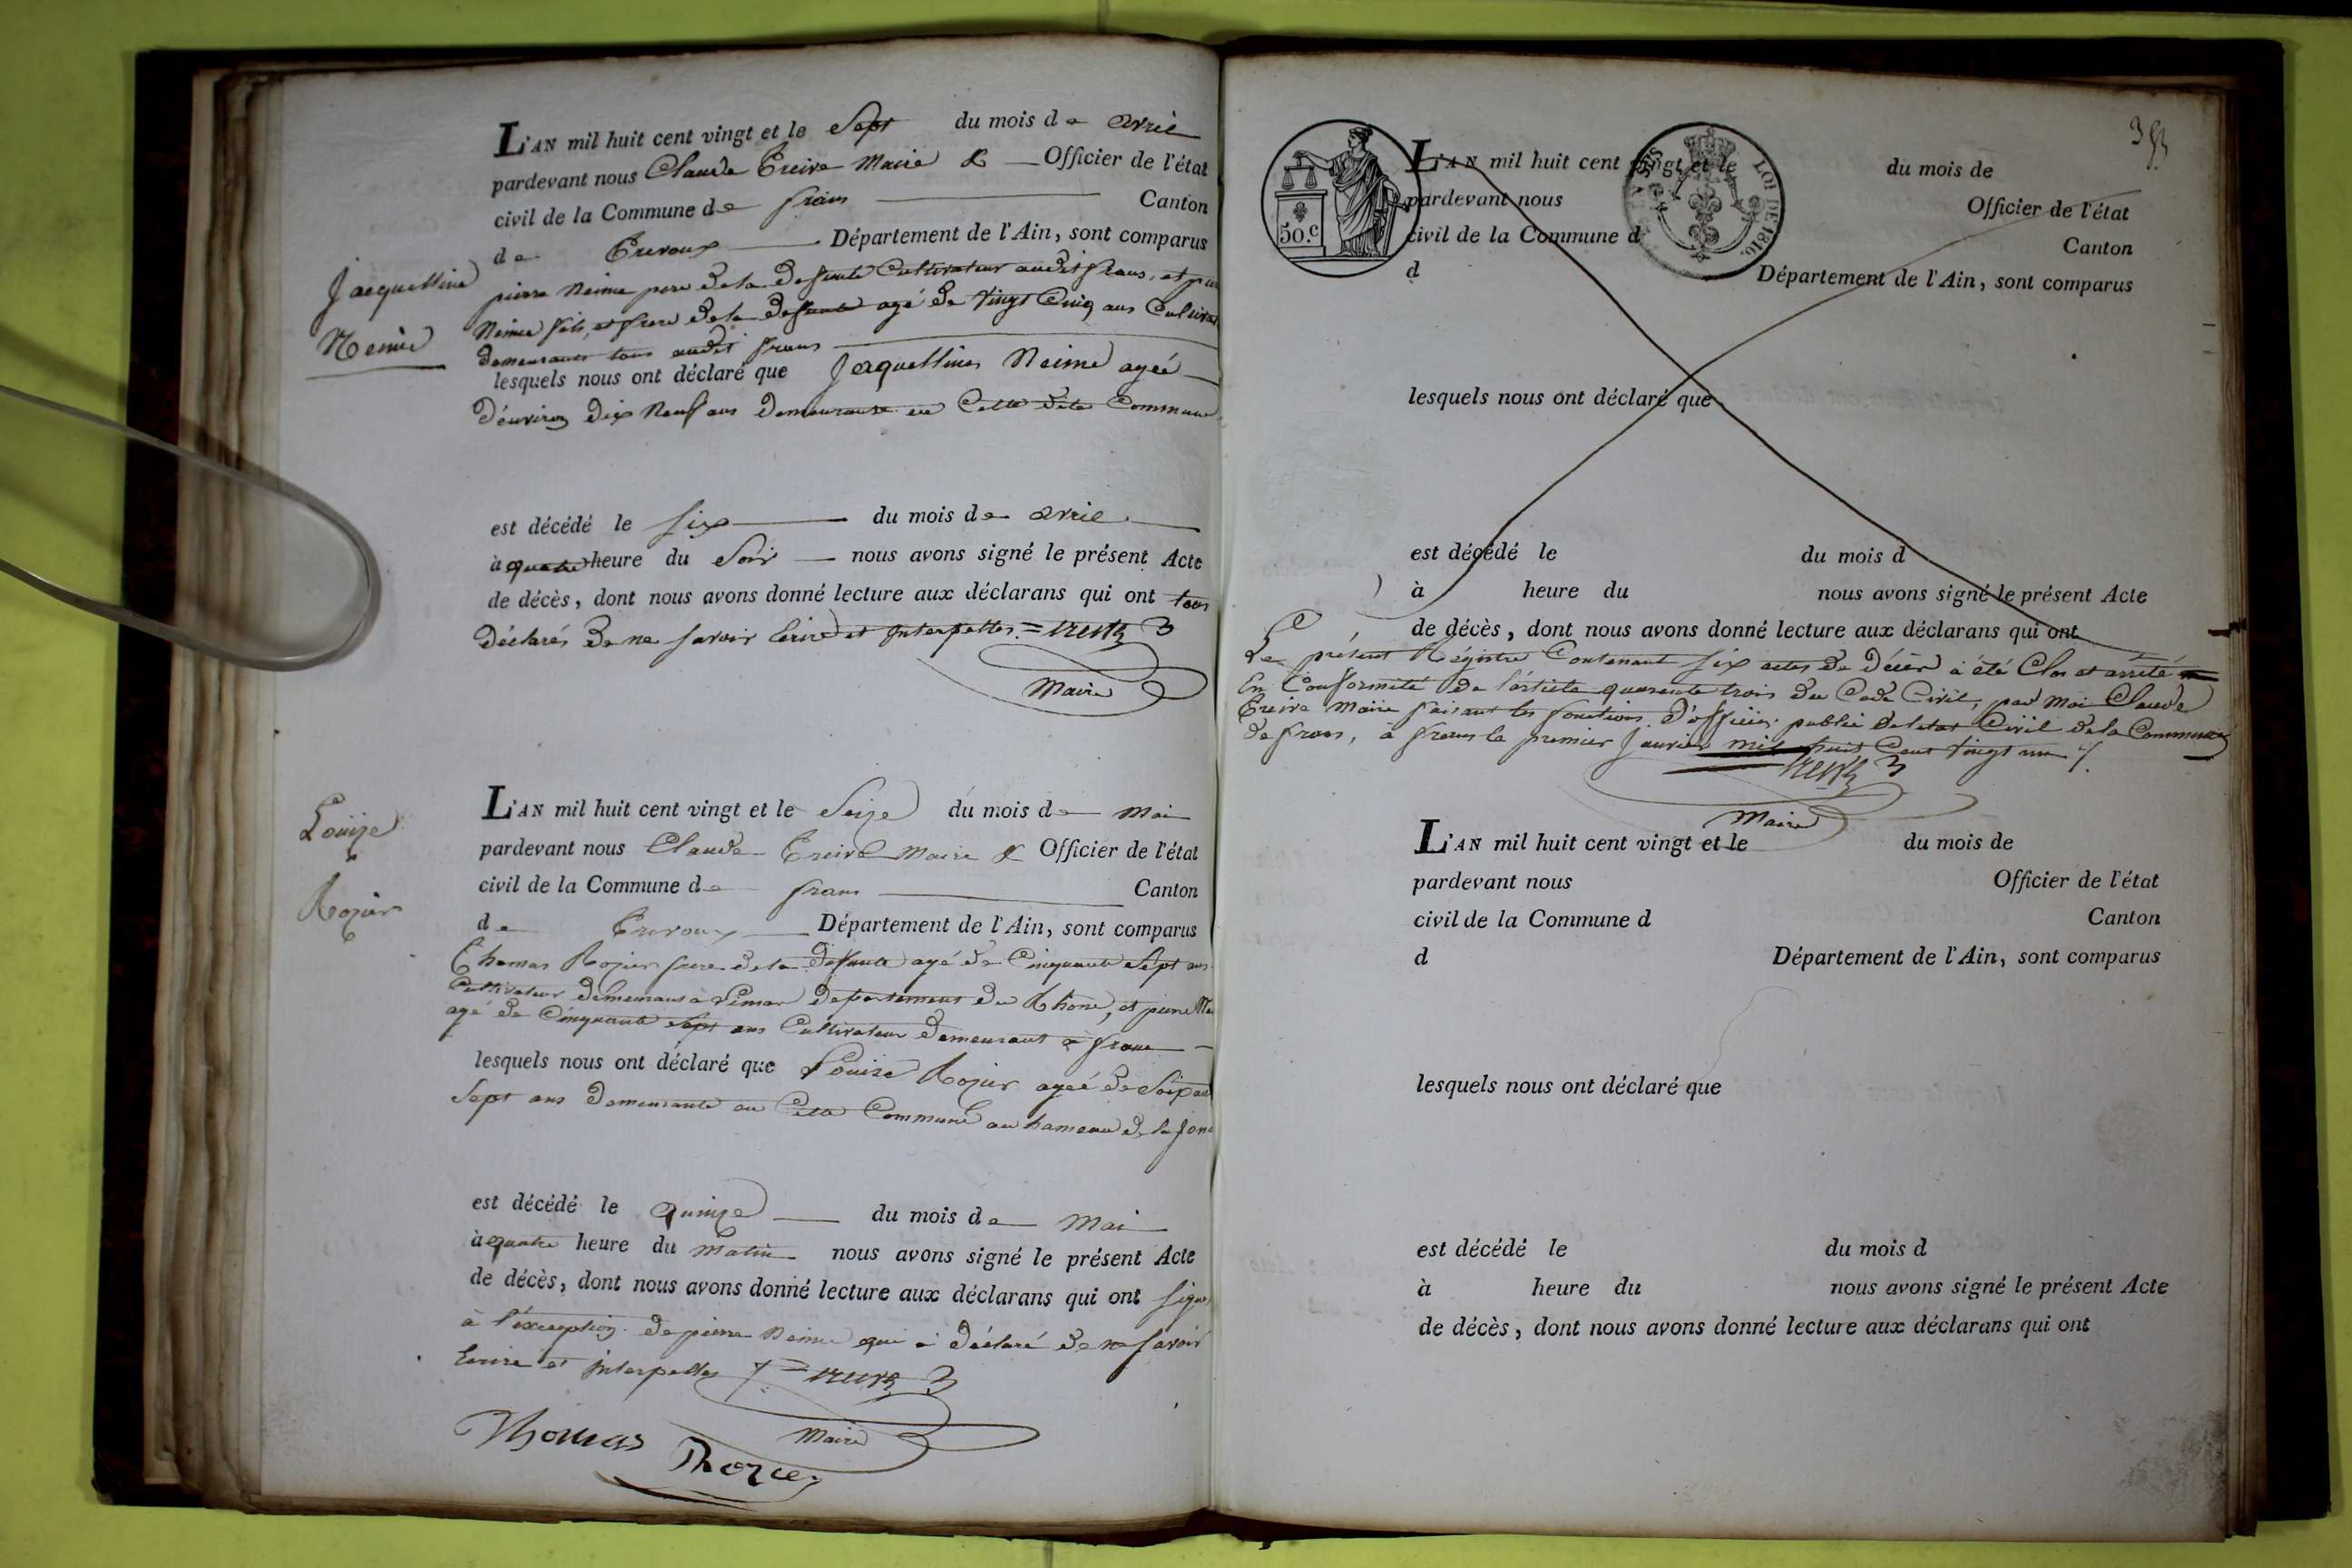 L'AN mil huit cent vingt et le Sept du mois de avril
pardevant nous Claude Treive Maire & Officier de l'état
civil de la Commune de frans Canton
de Trevoux Département de l'Ain, sont comparus
Jacquelline
Neime
pierre Neime pere de la defunte Cultivateur audit frans, et
Neime fils, et frere de la defunte agé de vingt Cinq ans
demeurants tous audit frans
lesquels nous ont déclaré que Jaquelline Neime ageé
d'environ dix Neuf ans demeurante en Cette dite Commune
est décédé le six du mois de avril
à quatre heure du Soir nous avons signé le présent Acte
de décès, dont nous avons donné lecture aux déclarans qui ont tous
déclarés de ne savoir Ecrire et Interpellés = Treive
Maire
Louize
Rozier
L'AN mil huit cent vingt et le Seize du mois de Mai
pardevant nous Claude Treive Maire & Officier de l'état
civil de la Commune de frans Canton
de Trevoux Département de l'Ain, sont comparus
Thomas Rozier frere de la defunte agé de Cinquante Sept ans
Cultivateur demeurant à departement du Rhone, et pierre
agé de Cinquante Sept ans Cultivateur demeurant à frans
lesquels nous ont déclaré que Louise Rozier ageé de
Sept ans demeurante en Cette Commune au hameau de la
est décédé le quinze du mois de Mai
à quatre heure du Matin nous avons signé le présent Acte
de décès, dont nous avons donné lecture aux déclarans qui ont
à l'exception de pierre Neime qui a déclaré de ne savoir
Ecrire et interpellés = Treive
Maire
Thomas
Rozier
L'AN mil huit cent vingt et le du mois de
pardevant nous Officier de l'état
civil de la Commune d Canton
d Département de l'Ain, sont comparus
50.c
LOI DE 1816.
lesquels nous ont déclaré que
est décédé le du mois d
à heure du nous avons signé le présent Acte
de décès, dont nous avons donné lecture aux déclarans qui ont
Le présent Régistre Contenant six actes de décès à été Clos et arrété
En Conformité de l'article quarente trois du Code Civil, par Moi Claude
Treive Maire faisant les fonctions d'officier public de l'etat Civil de la Commune
de frans, à frans le premier Janvier mil huit Cent vingt un
Treive
Maire
L'AN mil huit cent vingt et le du mois de
pardevant nous Officier de l'état
civil de la Commune d Canton
d Département de l'Ain, sont comparus
lesquels nous ont déclaré que
est décédé le du mois d
à heure du nous avons signé le présent Acte
de décès, dont nous avons donné lecture aux déclarans qui ont